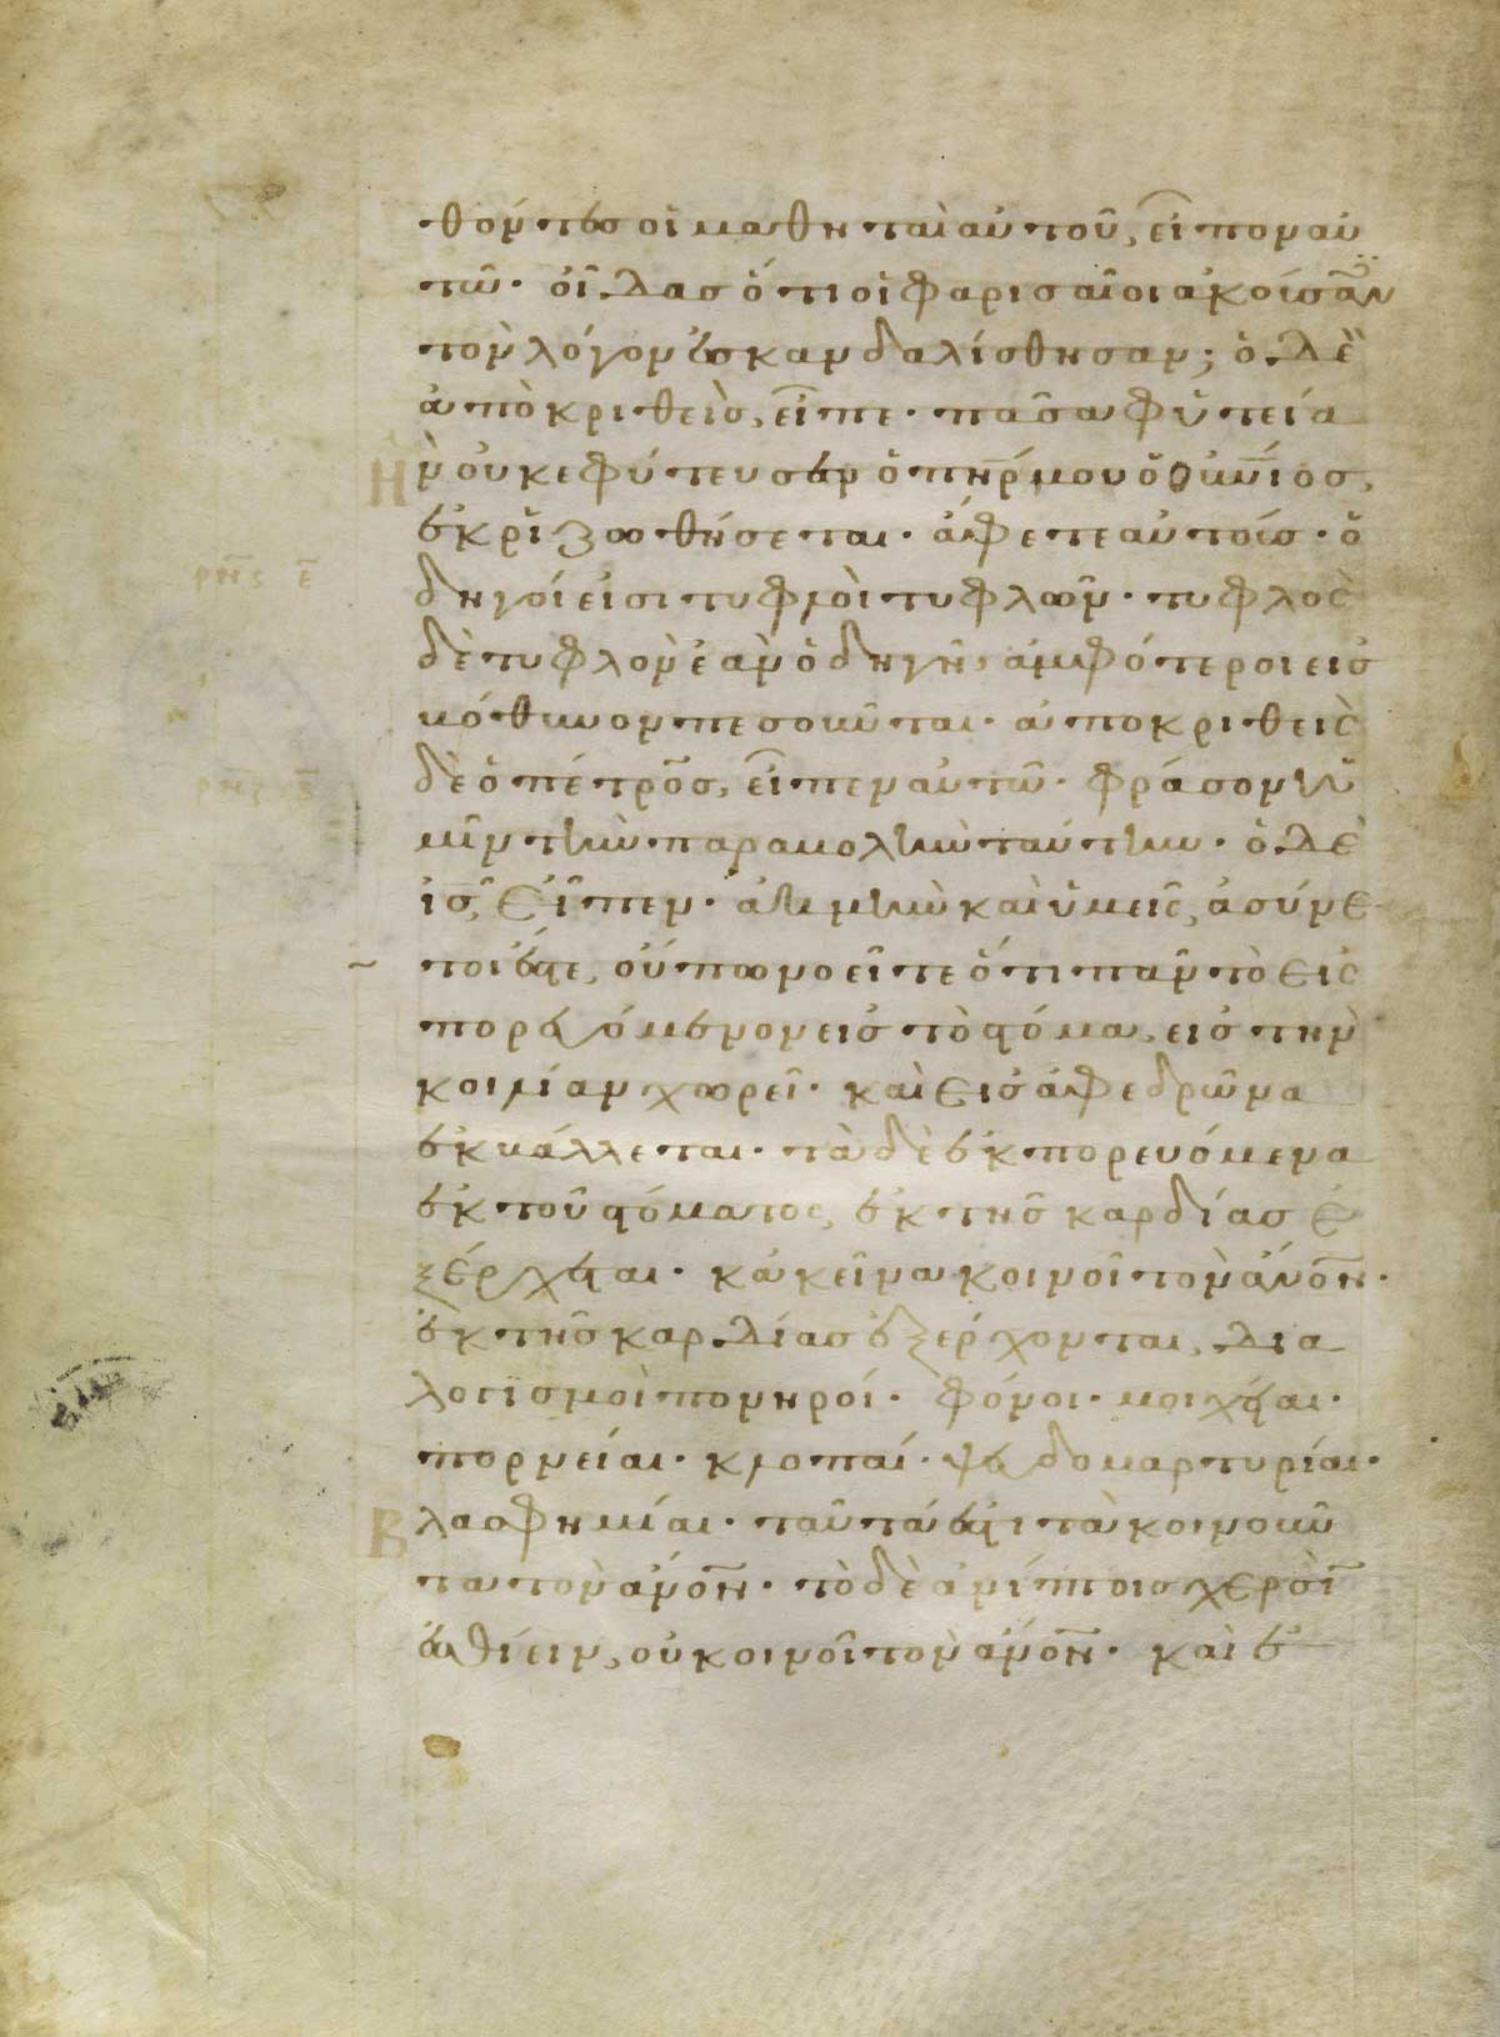 θόντες οἱ μαθηταὶ αὐτοῦ, εἶπον αὐ
τῶ· οἶδας ὅτι οἱ φαρισαῖοι ἀκούσαν
τὸν λόγον ἐσκανδαλίσθησαν; ὁ δὲ
ἀποκριθεὶς, εἶπε· πᾶσα φυτεία
Ἣ
ν οὐκ εφύτευσεν ὁ πη̅ρ μου ὁ ου̅νιος,
ἐκριζωθήσεται· ἄφετε αὐτούς· ὁ
δηγοί εἰσι τυφλοὶ τυφλῶν· τυφλὸς
δὲ τυφλὸν ἐὰν ὁδηγῆ, ἀμφότεροι εἰς
βόθυνον πεσοῦνται· ἀποκριθεὶς
δὲ ὁ πέτρος, εἶπεν αὐτῶ· φράσον ἡ
μῖν τὴν παραβολὴν ταύτην· ὁ δὲ
ι̅ς̅ εἶπεν· ἀκμὴν καὶ ὑμεῖς, ἀσύνε
τοί ἐστε, οὔπω νοεῖτε ὅτι πᾶν τὸ εἰς
πορευόμενον εἰς τὸ στόμα, εἰς τὴν
κοιλίαν χωρεῖ· καὶ εἰς ἀφεδρῶνα
ἐκβάλλεται· τὰ δὲ ἐκπορευόμενα
ἐκ τοῦ στόματος, ἐκ τῆς καρδίας ἐ
ξέρχεται· κἀκεῖνα κοινοῖ τὸν ἄνο̅ν·
ἐκ τῆς καρδίας ἐξέρχονται, δια
λογισμοὶ πονηροί· φόνοι· μοιχεῖαι·
πορνείαι· κλοπαί· ψευδομαρτυρίαι·
Β
λασφημίαι· ταῦτά ἐστι τὰ κοινοῦν
τα τὸν ἄνο̅ν· τὸ δὲ ἀνίπτοις χερσὶ
ἐσθίειν, οὐ κοινοῖ τὸν ἄνο̅ν· καὶ ἐ